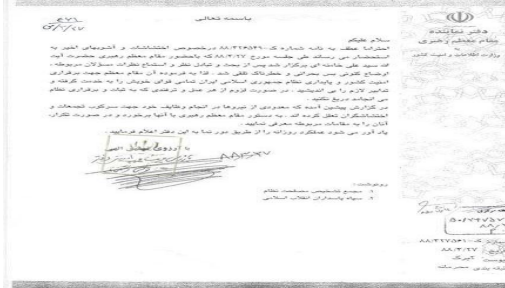 باسمه تعالی
دفتر نماینده
مقام معظم رهبری
به
وزارت اطلاعات و امنیت کشور
سلام علیکم
احتراما عطف به نامه شماره ک-۸۸/۳۲۶۵۶۹۰ درخصوص اختشاشات و آشوبهای اخیر به
استحضار می رساند طی جلسه مورخ ۸۸/۳/۲۷ که باحضور مقام معظم رهبری حضرت آیت
اله سید علی خامنه ای برگزار شد پس از بحث و تبادل نظر و استماع نظرات مسؤلان مربوطه،
اوضاع کنونی بس بحرانی و خطرناک تلقی شد. لذا به فرموده آن مقام معظم جهت برقراری
امنیت کشور و پایداری نظام جمهوری اسلامی ایران تمامی قوای خویش را به خدمت گرفته و
تدابیر لازم را بی اندیشید. در صورت لزوم از هر عمل و ترفندی که به ثبات و برقراری نظام
می انجامد دریغ نکنید.
در گزارش پیشین آمده که معدودی از نیروها در انجام وظایف خود جهت سرکوب تجمعات و
اختشاشگران تعلل کرده اند. به دستور مقام معظم رهبری با آنها برخورد و در صورت تکرار،
آنان را به مقامات مربوطه معرفی نمایید.
یاد آور می شود عملکرد روزانه را از طریق دور نما به این دفتر اعلام فرمایید.
رونوشت:
۱. مجمع تشخیص مصلحت نظام
۲. سپاه پاسداران انقلاب اسلامی